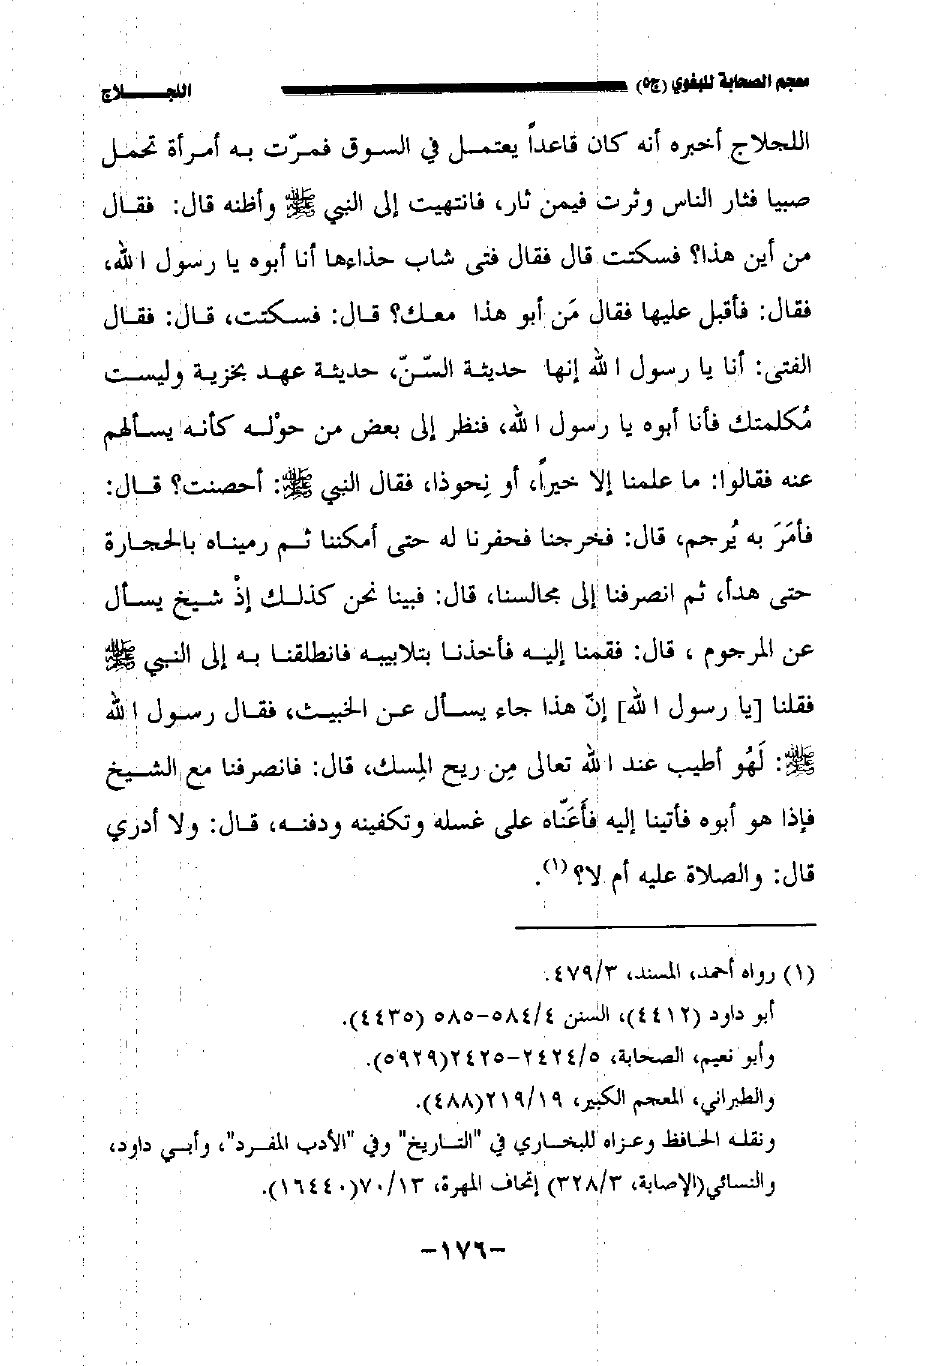 معجم الصحابة للبغوي (ج٥) اللجـــــلاج
اللجلاج أخبره أنه كان قاعداً يعتمـل في السوق فمرّت به أمرأة تحمل
صبيا فثار الناس وثرت فيمن ثار، فانتهيت إلى النبي ﷺ وأظنه قال: فقال
من أين هذا؟ فسكتت قال فقال فتى شاب حذاءها أنا أبوه يا رسول الله،
فقال: فأقبل عليها فقال مَن أبو هذا معك؟ قال: فسكتت، قال: فقال
الفتى: أنا يا رسول الله إنها حديثة السّنّ، حديثة عهد بخزية وليست
مُكلمتك فأنا أبوه يا رسول الله، فنظر إلى بعض من حوْله كأنه يسألهم
عنه فقالوا: ما علمنا إلا خيراً، أو نِحوذا، فقال النبي ﷺ: أحصنت؟ قال:
فأمَرَ به يُرجم، قال: فخرجنا فحفرنا له حتى أمكننا ثم رميناه بالحجارة
حتى هدأ، ثم انصرفنا إلى مجالسنا، قال: فبينا نحن كذلك إذْ شيخ يسأل
عن المرجوم ، قال: فقمنا إليه فأخذنا بتلابيبه فانطلقنا به إلى النبي ﷺ
فقلنا [يا رسول الله] إنّ هذا جاء يسأل عن الخبيث، فقال رسول الله
ﷺ: لَهُو أطيب عند الله تعالى مِن ريح المِسك، قال: فانصرفنا مع الشيخ
فإذا هو أبوه فأتينا إليه فأَعَنّاه على غسله وتكفينه ودفنه، قال: ولا أدري
قال: والصلاة عليه أم لا؟(١).
(١) رواه أحمد، المسند، ٤٧٩/٣.
أبو داود (٤٤١٢)، السنن ٥٨٤/٤-٥٨٥ (٤٤٣٥).
وأبو نعيم، الصحابة، ٢٤٢٤/٥-٢٤٢٥(٥٩٢٩).
والطبراني، المعجم الكبير، ٢١٩/١٩(٤٨٨).
ونقله الحافظ وعزاه للبخاري في "التاريخ" وفي "الأدب المفرد"، وأبي داود،
والنسائي(الإصابة، ٣٢٨/٣) إتحاف المهرة، ٧٠/١٣(١٦٤٤٠).
-١٧٦-